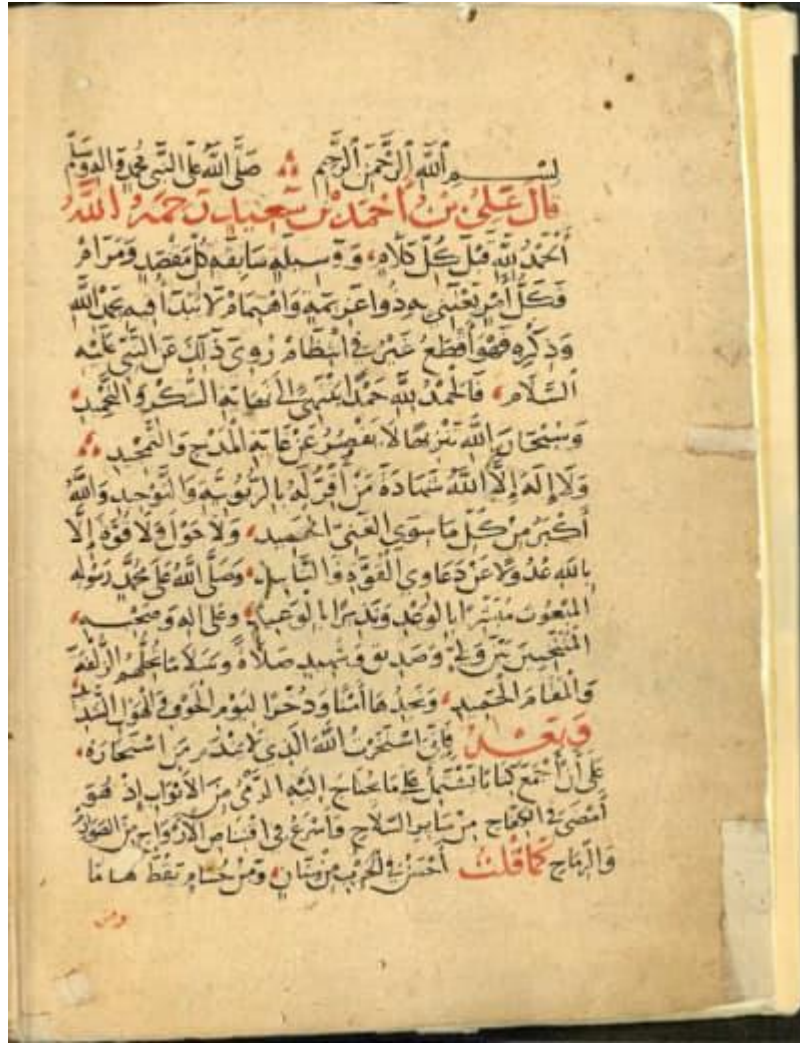 بِسْمِ اللَّهِ الرَّحْمَنِ الرَّحِيمِ صَلَّى اللَّهُ عَلَى النَّبِيِّ مُحَمَّدٍ وَآلِهِ وَسَلَّمَ
قَالَ عَلِيُّ بْنُ أَحْمَدَ بْنِ سَعِيدٍ رَحِمَهُ اللَّهُ
أَلْحَمْدُ لِلَّهِ قَبْلَ كُلِّ كَلَامٍ، وَوَسِيلَهٍ سَابِقَهٍ كُلَّ مَقْصَدٍ وَمَرَامٍ
فَكُلُّ أَمْرٍ يَعْتَنِي بِهِ ذُوا عَزِيمَهٍ وَاهْتِمَامٍ لَا يُبْدَأُ فِيهِ بِحَمْدِ اللَّهِ
وَذِكْرِهِ فَهُوَ أَقْطَعُ غَيْرُ فِي انْتِظَامٍ رُوِيَ ذَلِكَ عَنِ النَّبِيِّ عَلَيْهِ
السَّلَامُ، فَالْحَمْدُ لِلَّهِ حَمْدًا يَنْتَهِي إِلَى نِهَايَهِ الشُّكْرِ وَالتَّحْمِيدِ،
وَسُبْحَانَ اللَّهِ تَنْزِيهًا لَا يَقْصُرُ عَنْ غَايَهِ الْمَدْحِ وَالتَّمْجِيدِ
وَلَا إِلَهَ إِلَّا اللَّهُ شَهَادَةَ مَنْ أَقَرَّ لَهُ بِالرُّبُوبِيَّهِ وَالتَّوْحِيدِ وَاللَّهُ
أَكْبَرُ مِنْ كُلِّ مَا سِوَى الْغَنِيِّ الْحَمِيدِ، وَلَا حَوْلَ وَلَا قُوَّةَ إِلَّا
بِاللَّهِ عُدُولًا عَنْ دَعَاوِي الْقُوَّهِ وَالتَّأْيِيدِ، وَصَلَّى اللَّهُ عَلَى مُحَمَّدٍ رَسُولِهِ
الْمَبْعُوثِ مُبَشِّرًا بِالْوَعْدِ وَنَذِيرًا بِالْوَعِيدِ، وَعَلَى آلِهِ وَصَحْبِهِ،
الْمُنْتَجَبِينَ مِنْ وَلِيٍّ وَصِدِّيقٍ وَشَهِيدٍ صَلَاةً وَسَلَامًا الزُّلْفَهَ
وَالْمَقَامَ الْحَمِيدَ، وَنَجِدُهَا أَمْنًا وَذُخْرًا لِيَوْمِ الْخَوْفِ وَالْهَوْلِ الشَّدِيدِ
وَبَعْدُ فَإِنِّي اسْتَخَرْتُ اللَّهَ الَّذِي لَا يَنْدَمُ مَنِ اسْتَخَارَهُ،
عَلَى أَنْ أَجْمَعَ كِتَابًا يَشْتَمِلُ عَلَى مَا يَحْتَاجُ إِلَيْهِ الرَّمْيُ مِنَ الْأَبْوَابِ إِذْ هُوَ
أَمْضَى فِي الْكِفَاحِ مِنْ سَايِرِ السِّلَاحِ وَأَسْرَعُ فِي اقْتِنَاصِ الْأَرْوَاحِ مِنَ
وَالرِّمَاحِ كَمَا قُلْتُ أَحْسَنُ فِي الْحَرْبِ مِنْ سِنَانٍ، وَمِنْ حُسَامٍ
ومن